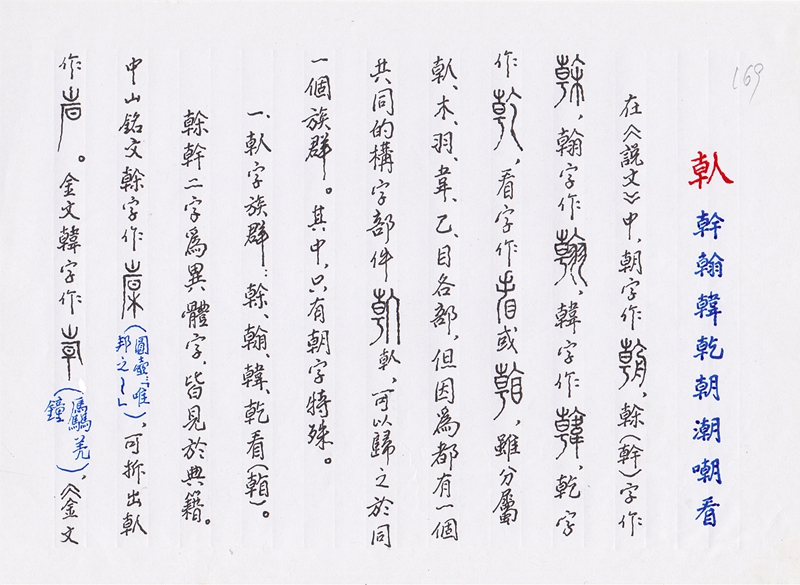 169
倝 幹翰韓乾朝潮嘲看
在《説文》中,朝字作,榦(幹)字作
,翰字作,韓字作,乾字
作,看字作或,雖分屬
倝、木、羽、韋、乙、目各部,但因為都有一個
共同的構字部件倝,可以歸之於同
一個族群。其中,只有朝字特殊。
一、倝字族群:榦、翰、韓、乾看(䩳)。
榦幹二字為異體字,皆見於典籍。
中山銘文榦字作(圓壺:「唯邦之~」),可拆出倝
作。金文韓字作(驫羌鐘),《金文